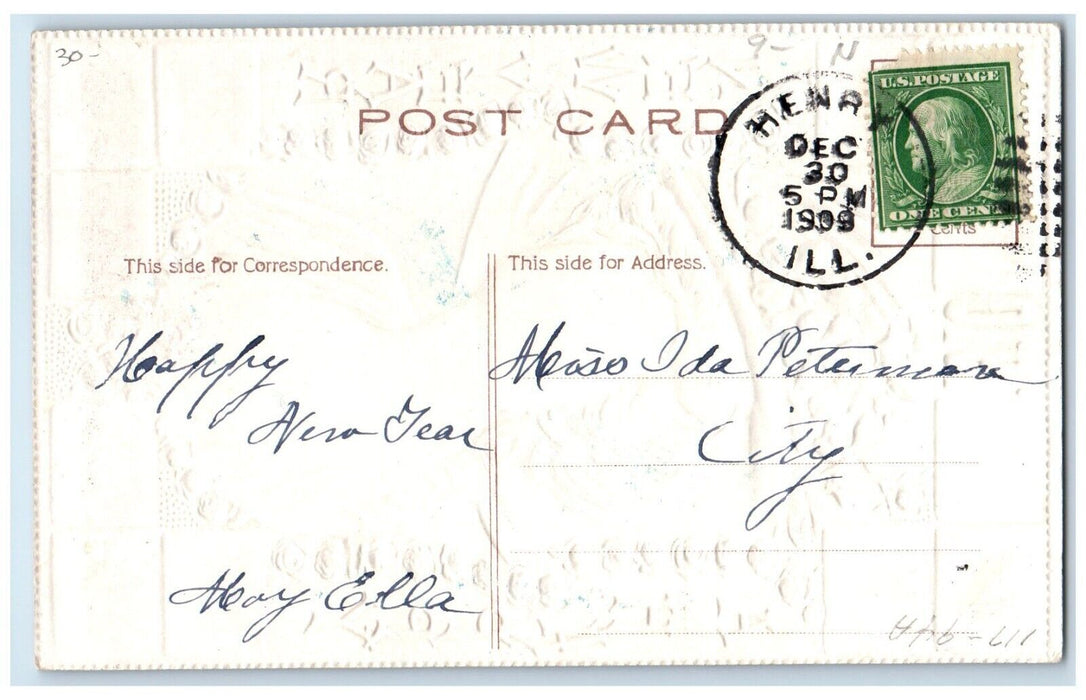 30-
9- N
POST CARD
U.S. POSTAGE
ONE CENT
HENRY
DEC
30
5 PM
1909
ILL.
Cents
This side for Correspondence.
This side for Address.
Happy
New Year
May Ella
Miss Ida Peterman
City